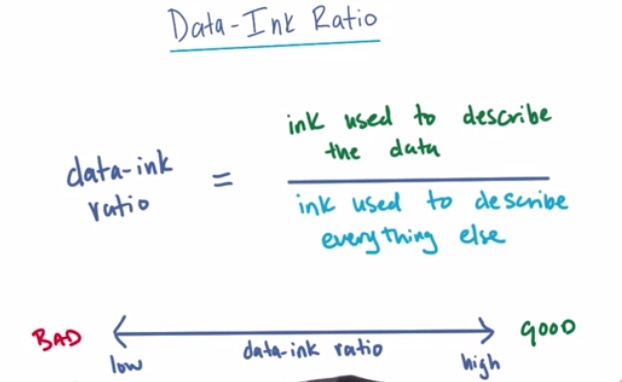 Data-Ink Ratio
data-ink ratio
=
ink used to describe
the data
ink used to describe
everything else
BAD
low
data-ink ratio
high
GOOD